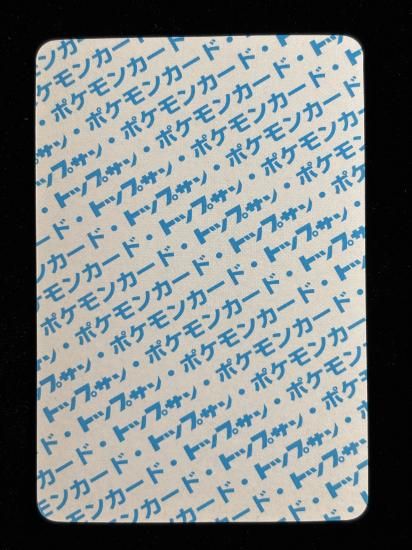 モンカード・
・ポケモンカード・
トップサン・ポケモンカード・
・トップサン・ポケモンカード・
ード・トップサン・ポケモンカード
カード・トップサン・ポケモン
モンカード・トップサン・ポケ
ケモンカード・トップサン・
・ポケモンカード・トップサン
サン・ポケモンカード・トップサン
トップサン・ポケモンカード・
・トップサン・ポケモンカード
ード・トップサン・ポケモン
モンカード・トップサン・ポケ
カード・トップサン・
トップサン